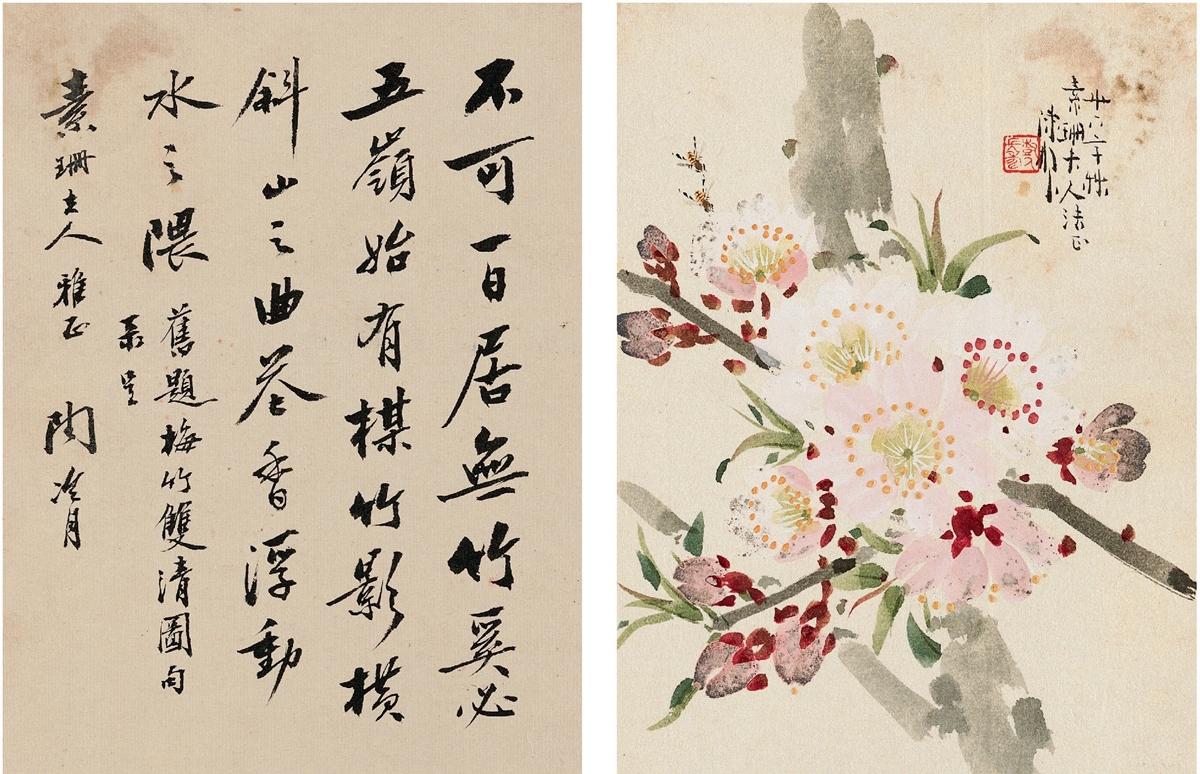 不可一日居無竹奚必
五嶺始有楳竹影橫
斜山之曲花香浮動
水之隈 舊題梅竹雙清圖句
彔呈
素珊夫人雅正 陶冷月
廿六年秋
素珊夫人法正